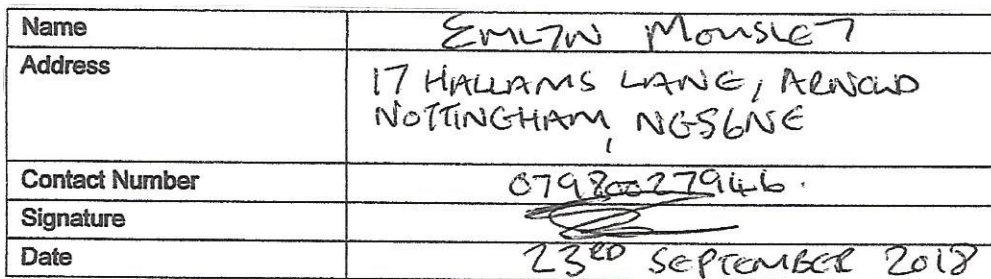 Name EMLYN MOUSLEY
Address 17 HALLAMS LANE, ARNOLD
NOTTINGHAM, NG56NE
Contact Number 07980027946.
Signature
Date 23RD SEPTEMBER 2018